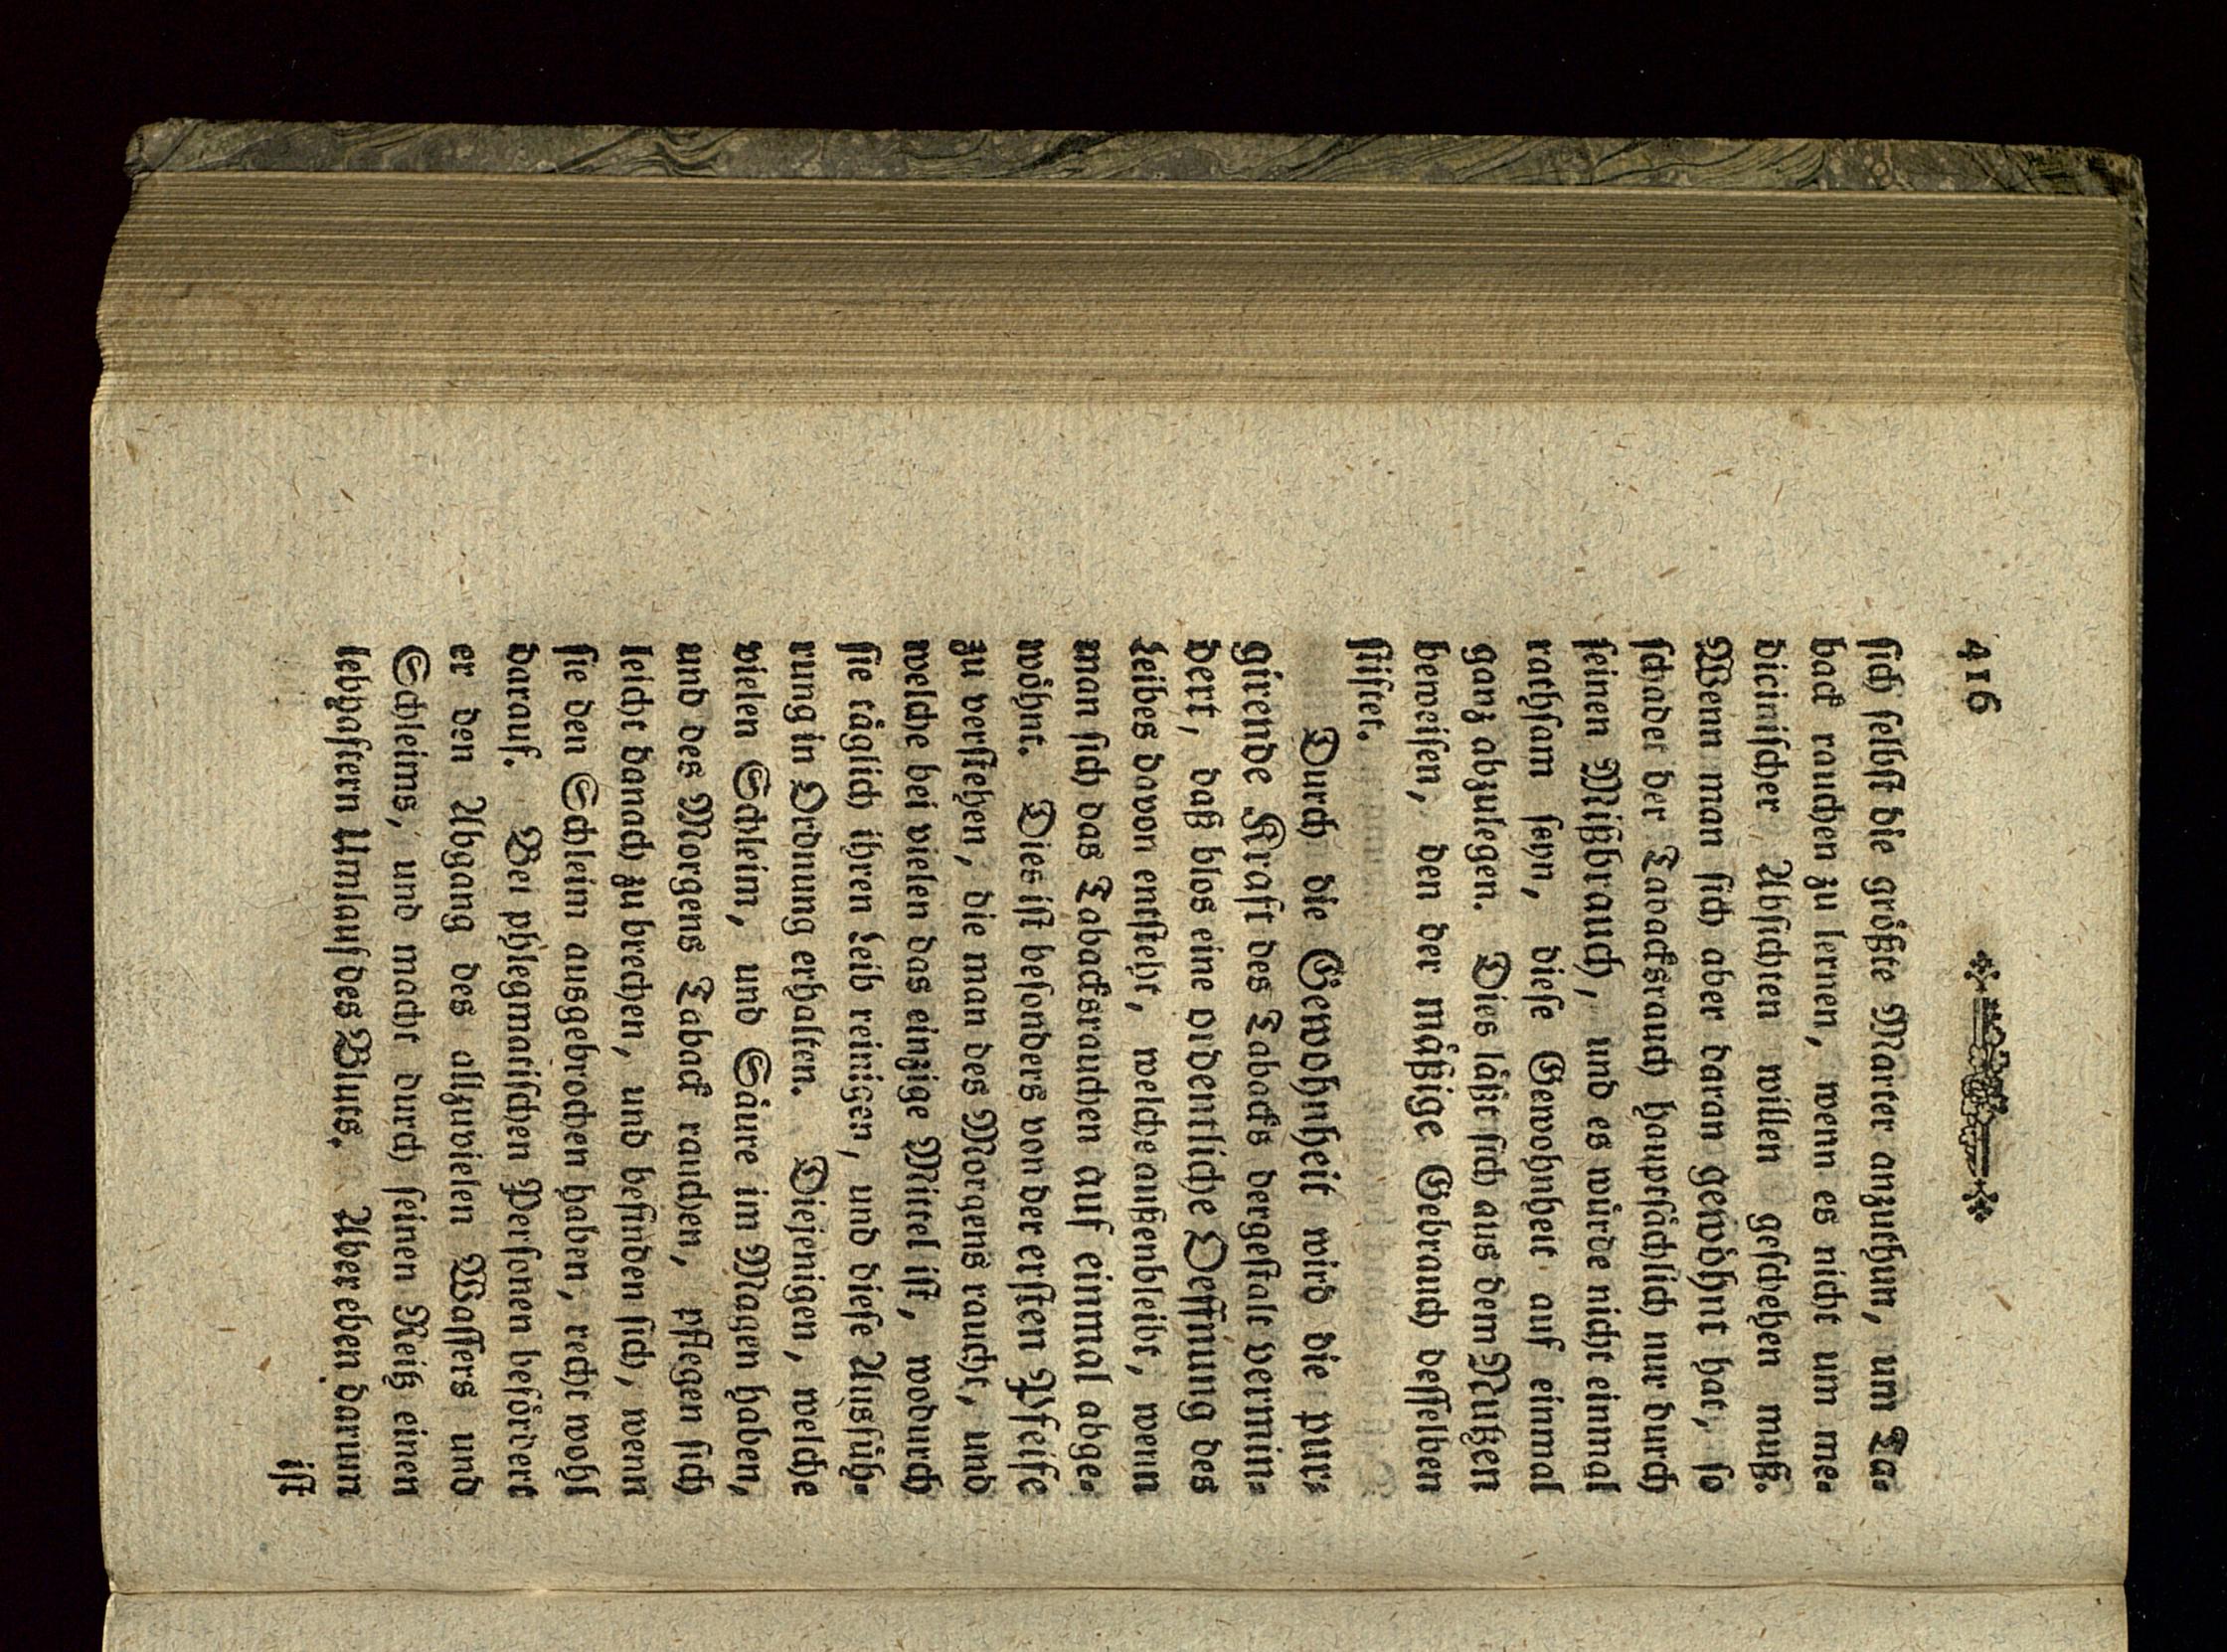 416
sich selbst die größte Marter anzuthun, um Ta-
back rauchen zu lernen, wenn es nicht um me-
dicinischer Absichten willen geschehen muß.
Wenn man sich aber daran gewöhnt hat, so
schadet der Tabacksrauch hauptsächlich nur durch
seinen Mißbrauch, und es würde nicht einmal
rathsam seyn, diese Gewohnheit auf einmal
ganz abzulegen. Dies läßt sich aus dem Nutzen
beweisen, den der mäßige Gebrauch desselben
stiftet.
Durch die Gewohnheit wird die pur-
girende Kraft des Tabacks dergestalt vermin-
dert, daß blos eine ordentliche Oeffnung des
Leibes davon entsteht, welche außenbleibt, wenn
man sich das Tabacksrauchen auf einmal abge-
wöhnt. Dies ist besonders von der ersten Pfeife
zu verstehen, die man des Morgens raucht, und
welche bei vielen das einzige Mittel ist, wodurch
sie täglich ihren Leib reinigen, und diese Ausfüh-
rung in Ordnung erhalten. Diejenigen, welche
vielen Schleim, und Säure im Magen haben,
und des Morgens Taback rauchen, pflegen sich
leicht danach zu brechen, und befinden sich, wenn
sie den Schleim ausgebrochen haben, recht wohl
darauf. Bei phlegmatischen Personen befördert
er den Abgang des allzuvielen Wassers und
Schleims, und macht durch seinen Reiß einen
lebhaftern Umlauf des Bluts. Aber eben darum
ist